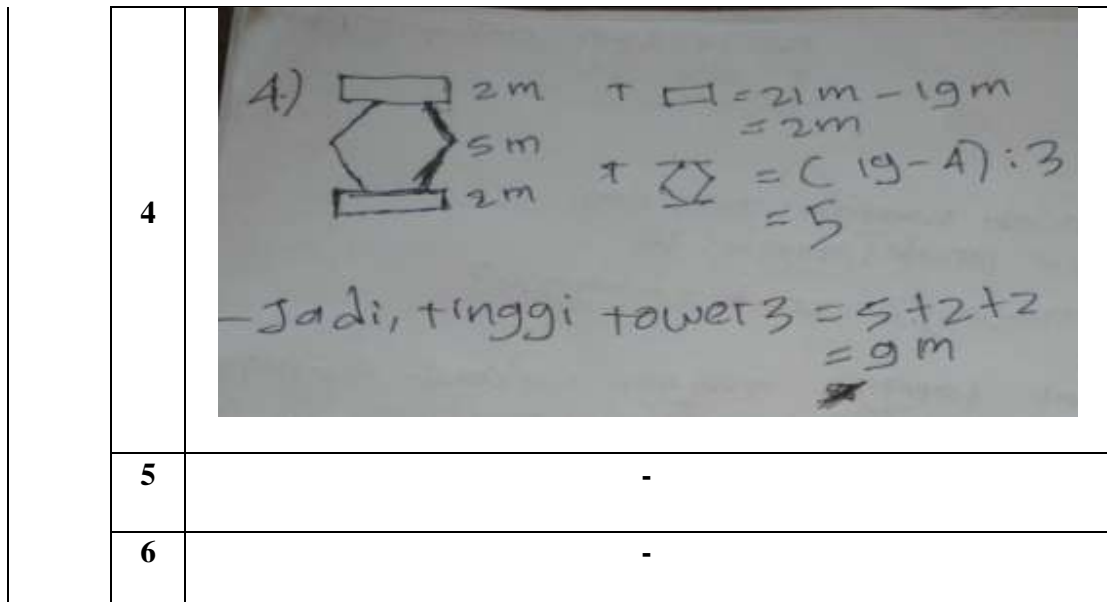 4
4.) 2m + = 21m - 19m
= 2m
5m + = ( 19 - 4) : 3
2m = 5
- Jadi, tinggi tower 3 = 5 + 2 + 2
= 9 m
5 -
6 -